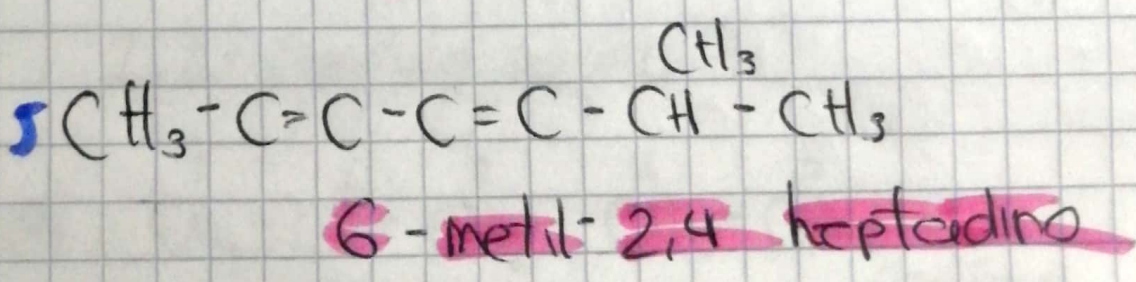 CH3
5 CH3 - C = C - C = C - CH - CH3
6 - metil - 2,4 heptadino